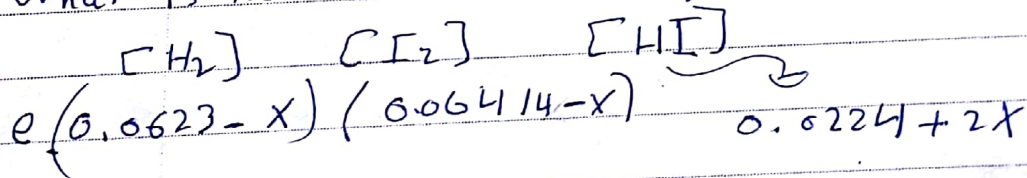 [H₂] [I₂] [HI]
e (0.0623 - x) (0.06414 - x) 0.0224 + 2x